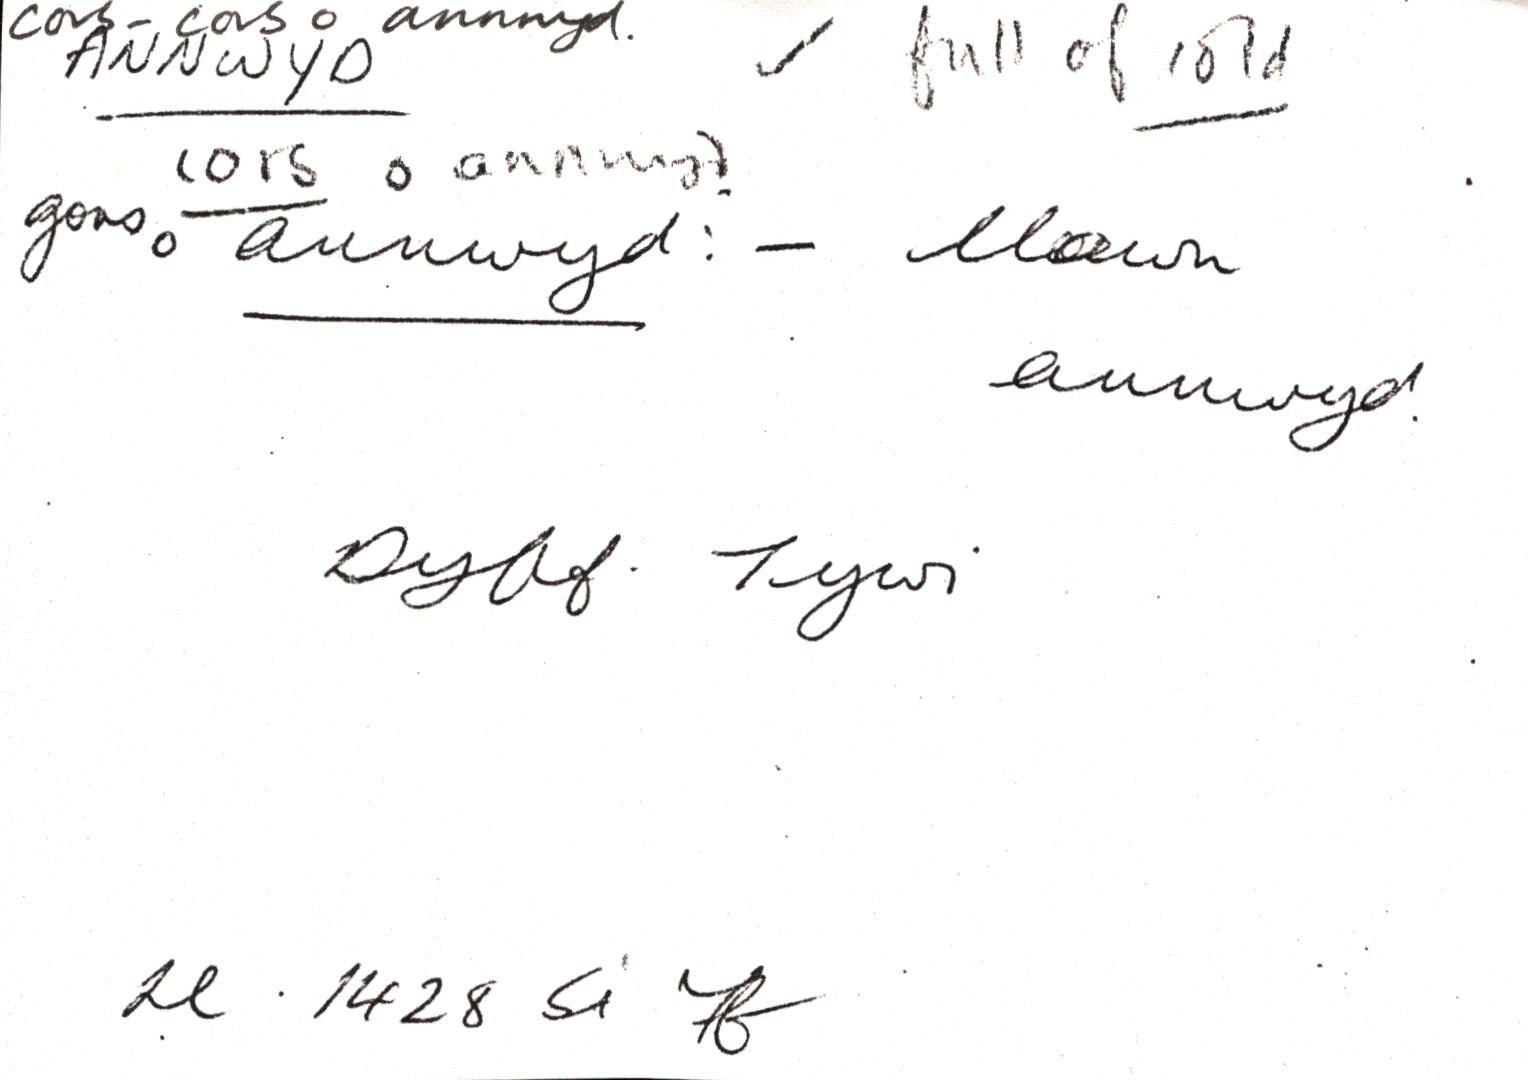 cors - cors o annwyd.
ANNWYD ✓ full of cold
cors o annwyd.
gors o annwyd: - llawn
annwyd.
Dyff. Tywi
Ll. 1428 Si